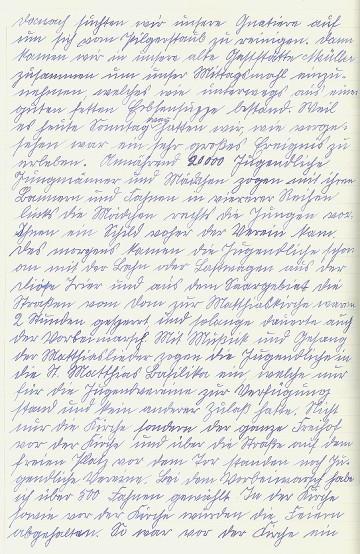 Danach suchten wir unsere Quatiere auf
um sich vom Pilgerstaub zu reinigen. Dann
kamen wir in unsere alte Gaststätte Müller
zusammen um unser Mittagsmahl einzu-
nehmen, welches wie unterwegs aus einer
guten fetten Erbsensuppe bestand. Weil
es heute Sonntag war hatten wir, wie vorge-
sehen war ein sehr großes Ereignis zu
erleben. Annährend 20000 Jugendliche
Jungmänner und Mädchen zogen mit ihren
Bannern und Fahnen in viererer Reihen
links die Mädchen rechts die Jungen vor
ihnen ein Schild woher der Verein kam.
Des morgens kamen die Jugendliche schon
an mit der Bahn oder Lastwagen aus der
Diöße Trier und aus dem Saargebiet die
Straßen vom Dom zur Matthiaskirche waren
2 Stunden gesperrt und solange dauerte auch
der Vorbeimarsch. Mit Musik und Gesang
der Matthiaslieder zogen die Jugendliche in
die St. Matthias Basilika ein welche nur
für die Jugendvereine zur Verfügung
stand und kein anderer Zulaß hatte. Nicht
nur die Kirche sondern der ganze Freihof
vor der Kirche und über die Straße auf dem
freien Platz vor dem Tor standen noch Ju-
gendliche Vereine. Bei dem Vorbeimarsch habe
ich über 500 Fahnen gezählt. In der Kirche
sowie vor der Kirche wurden die Feiern
abgehalten. So war vor der Kirche ein